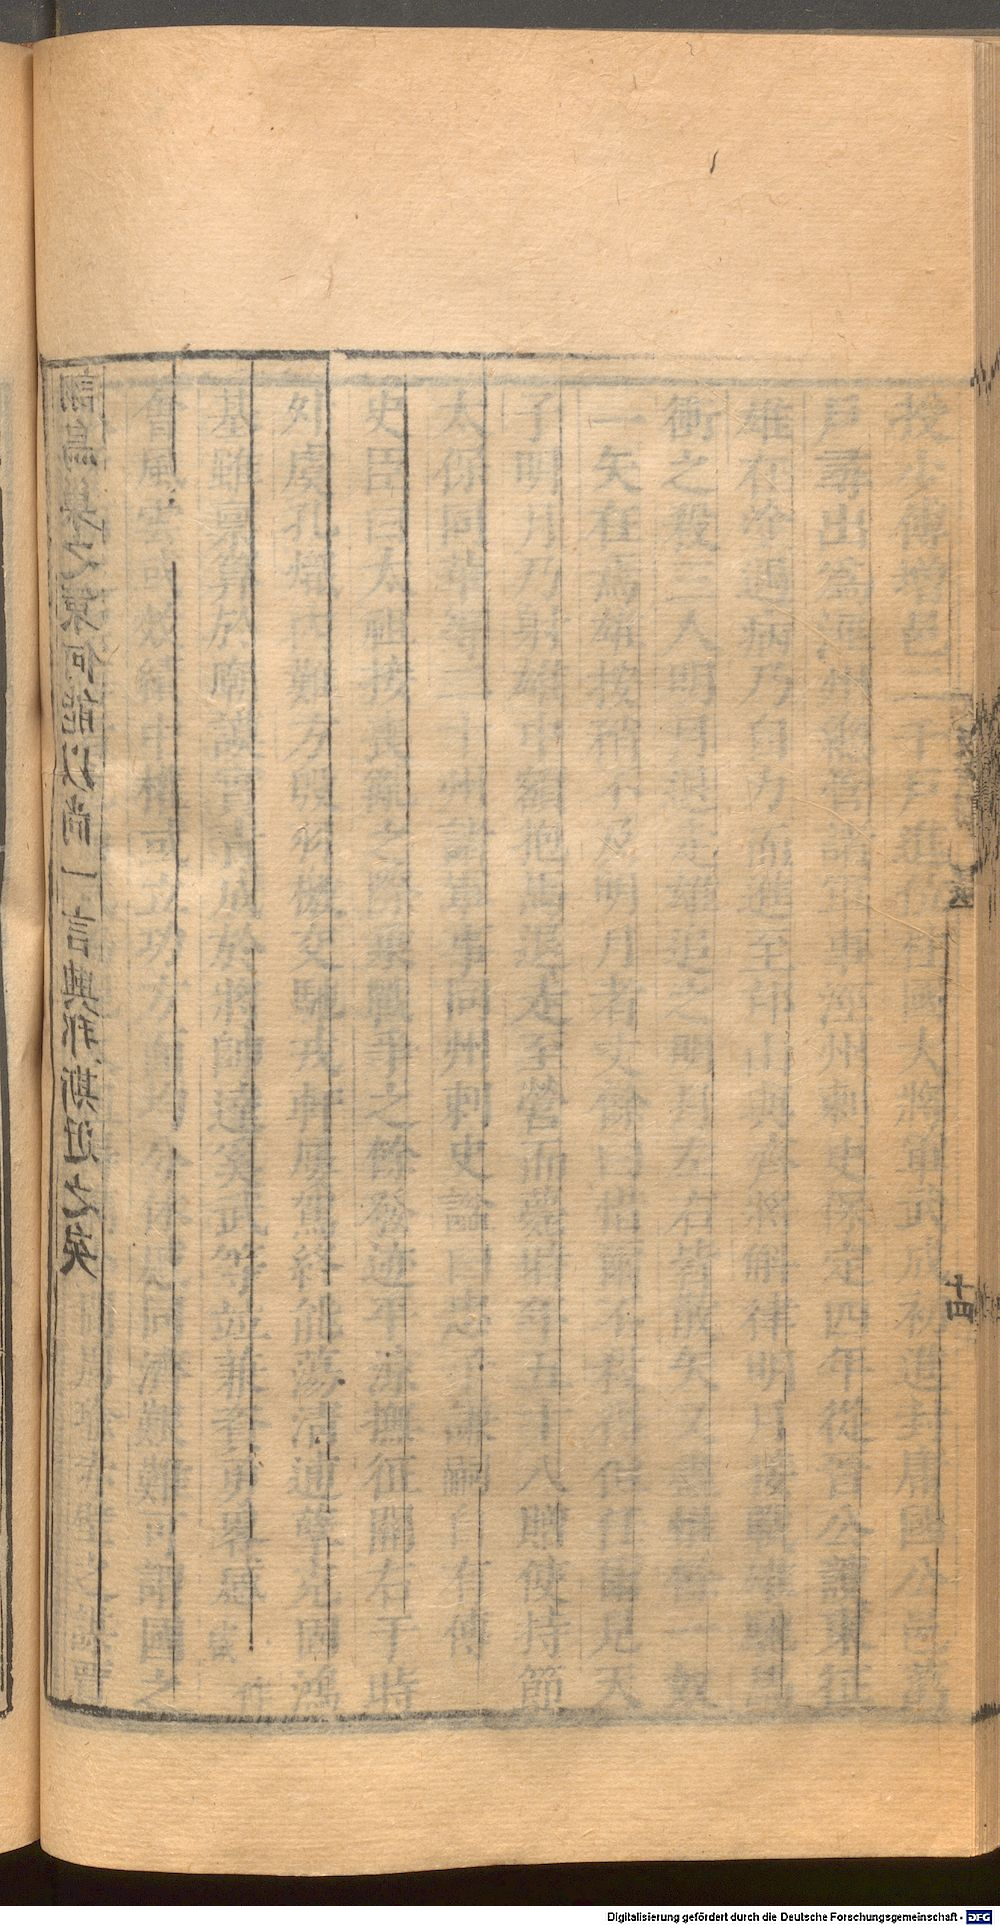 授少傅增邑二千戶進位柱國大將軍武成初進封庸國公邑萬
戶尋出為涇州總管諸軍事涇州刺史保定四年從晉公護東征
雄在塗遇病乃自力而進至邙山與齊將斛律明月接戰雄馳馬
衝之殺三人明月退走雄追之明月左右皆散矢又盡惟餘一奴
一矢在焉雄按矟不及明月者丈餘曰惜爾不殺得但任爾見天
子明月乃射雄中額抱馬退走至營而薨時年五十八贈使持節
太保同華等二十州諸軍事同州刺史諡曰忠子謙嗣自有傳
史臣曰太祖接喪亂之際乘戰爭之餘發迹平涼撫征關右于時
外虜孔熾內難方殷羽檄交馳戎軒屢駕終能蕩清逋孽克固鴻
基雖稟算於廟謨實責成於將帥達奚武等並兼資勇略咸
會風雲或效績中權或立功方面均分休戚同濟艱難可謂國之
關周瑜赤壁之謀賈
詡烏巢之策何能以尚一言興邦斯近之矣
十四
Digitalisierung gefördert durch die Deutsche Forschungsgemeinschaft - DFG